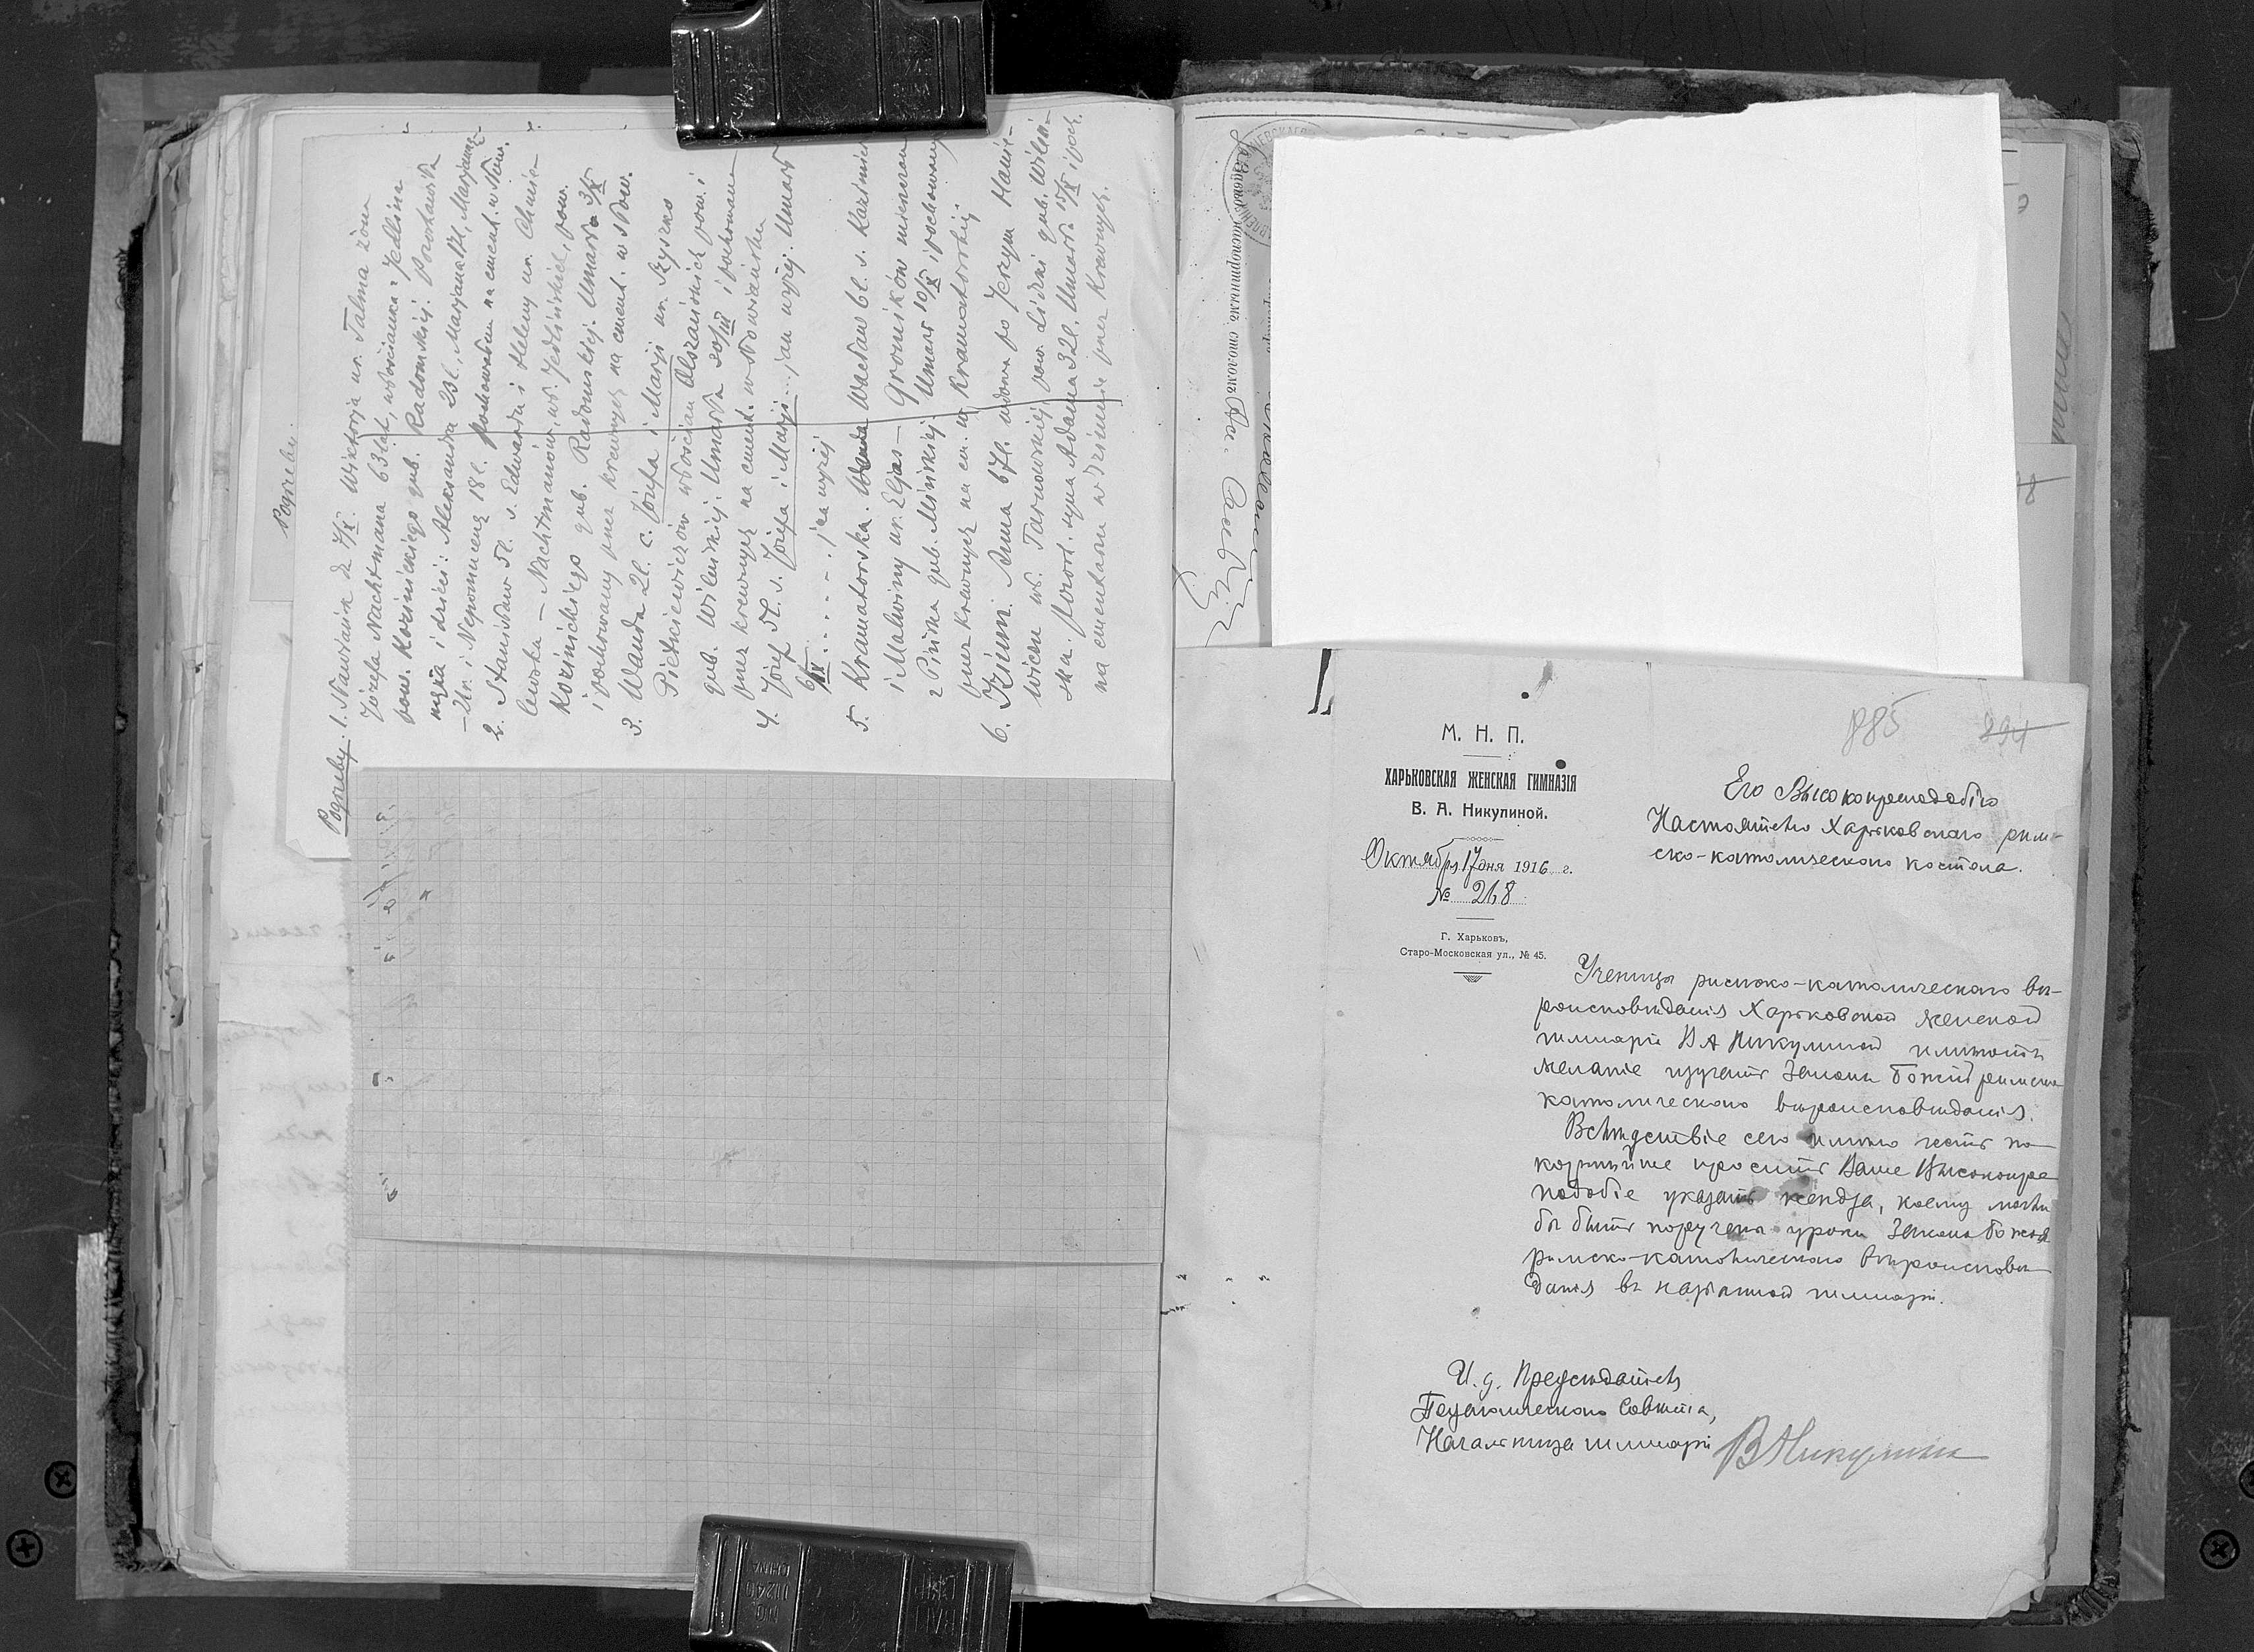 Pogrzeby.
Pogrzeby. 1. Nowowańsk d. 7/IX. Wiktorja ur. Talma żona
Józefa Nachtmana 63 lat, włościanka z Jedlina
pow. Kozienickiego gub. Radomskiej. Pozostawiła
męża i dzieci: Aleksandra 23l., Marjana 17l., Marjannę
18l. pochowana na cment. w Now.
2. Stanisław 5l. s. Edwarda i Heleny ur. Chmie-
lewska — Nachtmanów, wł. Jedlińskich, pow.
Kozienickiego gub. Radomskiej. Umarł 3/X
i pochowany przez krewnych na cment. w Now.
3. Wanda 2l. c. Józefa i Marji ur. Szyszko
Pietkiewiczów włościan Olszańskich pow. i
gub. Wileńskiej. Umarła 30/VIII i pochowana
przez krewnych na cment. w
4. Józef 5l. s. Józefa i Marji... jau wyżej. Umarł
6/IX . . . . . . jau wyżej
5. Kramatorska. Wacław 6l. s. Kazimierza
i Malwiny ur. Eljas — Gromików mieszczan
z Pińska gub. Mińskiej. Umarł 10/X i pochowany
przez krewnych na cm. w Kramatorskiej.
6. Anna 67l. wdowa po Jerzym Hani-
wiczu wł. Tarnowskiej, pow. Lidzki gub. Wileń-
ska. pozost. syna Adama 32l. Umarła 15/X i poch.
na cmentarzu w przez krewnych.
885
294
М. Н. П.
ХАРЬКОВСКАЯ ЖЕНСКАЯ ГИМНАЗІЯ
В. А. Никулиной.
Октября 17 дня 1916 г.
№ 268
Г. Харьковъ,
Старо-Московская ул., № 45.
Его Высокопреподобію
Настоятелю Харьковскаго рим-
ско-католическаго костела.
Ученицы римско-католическаго вѣ-
роисповѣданія Харьковской женской
гимназіи В А Никулиной имѣютъ
желаніе изучать Законъ Божій римско
католическаго вѣроисповѣданія.
Вслѣдствіе сего имѣю честь по-
корнѣйше просить Ваше Высокопре
подобіе указать ксендза, коему могли
бы быть поручены уроки Закона Божія
римско-католическаго вѣроисповѣ-
данія въ названной гимназіи.
И. д. Предсѣдатель
Педагогическаго Совѣта,
Начальница гимназіи ВНикулина